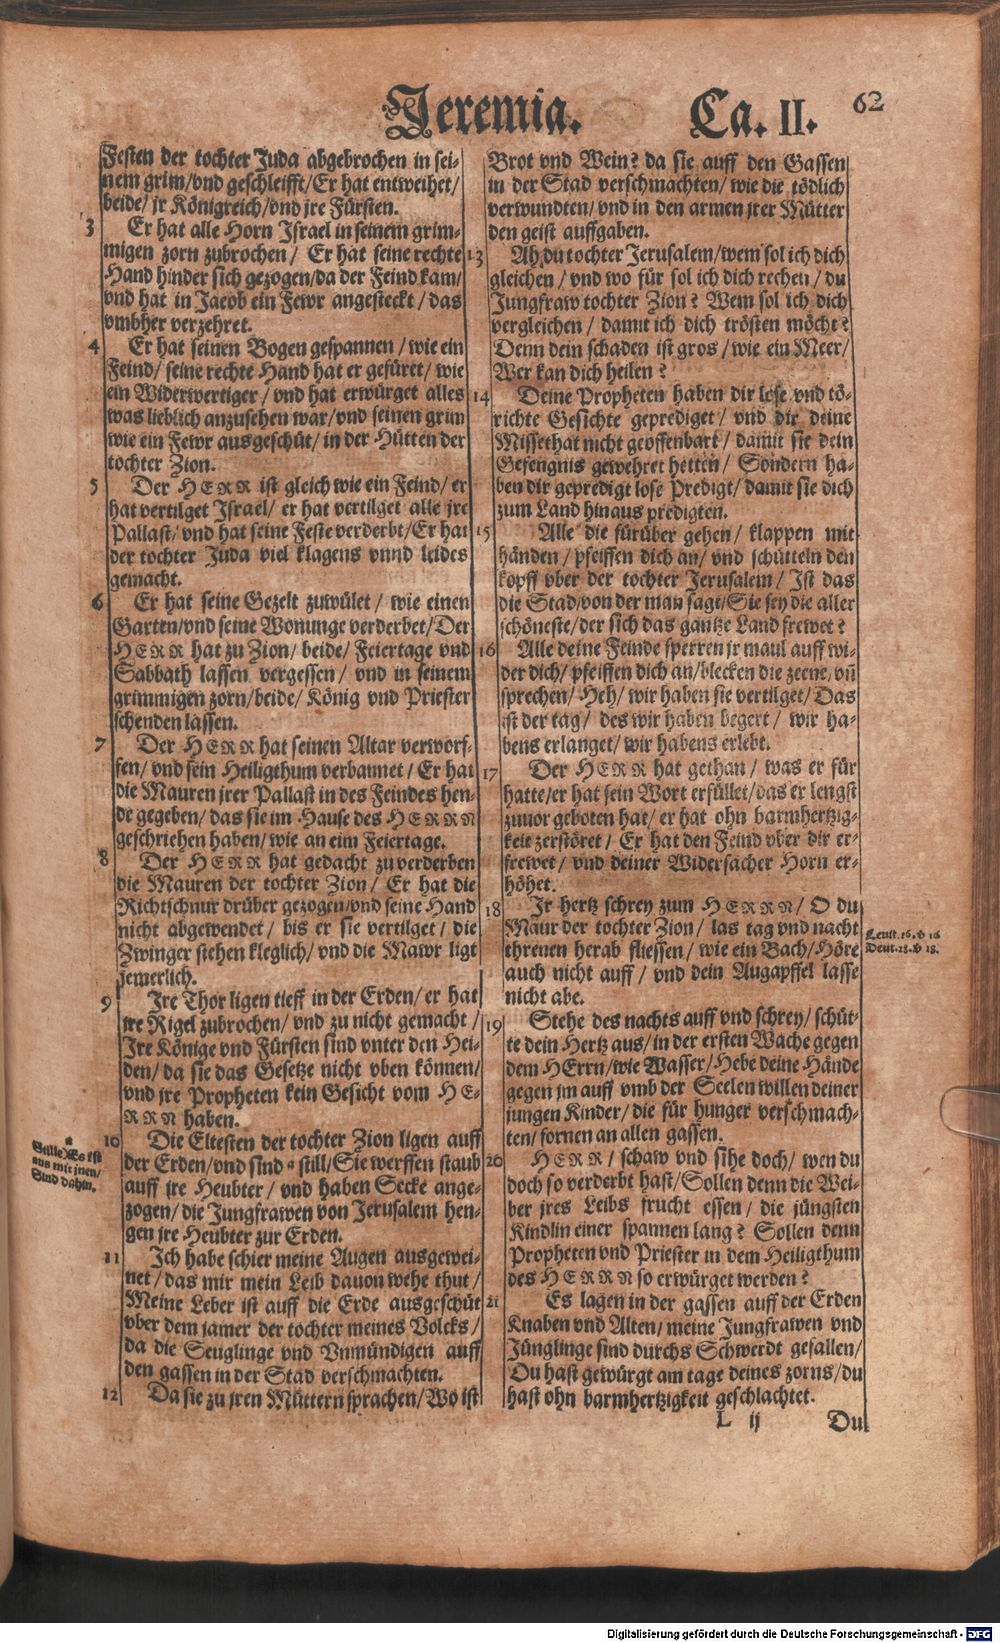 Jeremia. Ca. II. 62
Festen der tochter Juda abgebrochen in sei-
nem grim/vnd geschleifft/Er hat entweihet/
beide/ jr Königreich/vnd jre Fürsten.
3 Er hat alle Horn Israel in seinem grim-
migen zorn zubrochen/ Er hat seine rechte
Hand hinder sich gezogen/da der Feind kam/
vnd hat in Jacob ein Fewr angesteckt/ das
vmbher verzehret.
4 Er hat seinen Bogen gespannen/ wie ein
Feind/ seine rechte Hand hat er gefüret/ wie
ein Widerwertiger/ vnd hat erwürget alles
was lieblich anzusehen war/vnd seinen grim
wie ein Fewr ausgeschüt/ in der Hütten der
tochter Zion.
5 Der HERR ist gleich wie ein Feind/ er
hat vertilget Israel/ er hat vertilget alle jre
Pallast/ vnd hat seine Feste verderbt/Er hat
der tochter Juda viel klagens vnnd leides
gemacht.
6 Er hat seine Gezelt zuwület/ wie einen
Garten/vnd seine Wonunge verderbet/Der
HERR hat zu Zion/ beide/ Feiertage vnd
Sabbath lassen vergessen/ vnd in seinem
grimmigen zorn/beide/ König vnd Priester
schenden lassen.
7 Der HERR hat seinen Altar verworf-
fen/ vnd sein Heiligthum verbannet/ Er hat
die Mauren jrer Pallast in des Feindes hen-
de gegeben/ das sie im Hause des HERRN
geschriehen haben/ wie an eim Feiertage.
8 Der HERR hat gedacht zu verderben
die Mauren der tochter Zion/ Er hat die
Richtschnur drüber gezogen/vnd seine Hand
nicht abgewendet/ bis er sie vertilget/ die
Zwinger stehen kleglich/ vnd die Mawr ligt
jemerlich.
9 Ire Thor ligen tieff in der Erden/ er hat
jre Rigel zubrochen/ vnd zu nicht gemacht/
Ire Könige vnd Fürsten sind vnter den Hei-
den/ da sie das Gesetze nicht vben können/
vnd jre Propheten kein Gesicht vom HE-
RRN haben.
10 Die Eltesten der tochter Zion ligen auff
der Erden/vnd sind a still/Sie werffen staub
auff jre Heubter/ vnd haben Secke ange-
zogen/ die Jungfrawen von Jerusalem hen-
gen jre Heubter zur Erden.
11 Ich habe schier meine Augen ausgewei-
net/ das mir mein Leib dauon wehe thut/
Meine Leber ist auff die Erde ausgeschüt
vber dem jamer der tochter meines Volcks/
da die Seuglinge vnd Vnmündigen auff
den gassen in der Stad verschmachten.
12 Da sie zu jren Müttern sprachen/ Wo ist
a
Stille) Es ist
aus mit jnen/
Sind dahin.
Brot vnd Wein? da sie auff den Gassen
in der Stad verschmachten/ wie die tödlich
verwundten/ vnd in den armen jrer Mütter
den geist auffgaben.
13 Ah du tochter Jerusalem/wem sol ich dich
gleichen/ vnd wo für sol ich dich rechen/ du
Jungfraw tochter Zion? Wem sol ich dich
vergleichen/ damit ich dich trösten möcht?
Denn dein schaden ist gros/ wie ein Meer/
Wer kan dich heilen?
14 Deine Propheten haben dir lose vnd tö-
richte Gesichte geprediget/ vnd dir deine
Missethat nicht geoffenbart/ damit sie dein
Gefengnis gewehret hetten/ Sondern ha-
ben dir gepredigt lose Predigt/ damit sie dich
zum Land hinaus predigten.
15 Alle die fürüber gehen/ klappen mit
händen/ pfeiffen dich an/ vnd schütteln den
kopff vber der tochter Jerusalem/ Ist das
die Stad/von der man sagt/Sie sey die aller
schöneste/der sich das gantze Land frewet?
16 Alle deine Feinde sperren jr maul auff wi-
der dich/ pfeiffen dich an/blecken die zeene/vñ
sprechen/ Heh/ wir haben sie vertilget/ Das
ist der tag/ des wir haben begert/ wir ha-
bens erlanget/ wir habens erlebt.
17 Der HERR hat gethan/ was er für
hatte/er hat sein Wort erfüllet/das er lengst
zuuor geboten hat/ er hat ohn barmhertzig-
keit zerstöret/ Er hat den Feind vber dir er-
frewet/ vnd deiner Widersacher Horn er-
höhet.
18 Ir hertz schrey zum HERRN/ O du
Maur der tochter Zion/ las tag vnd nacht
threnen herab fliessen/ wie ein Bach/ Höre
auch nicht auff/ vnd dein Augapffel lasse
nicht abe.
19 Stehe des nachts auff vnd schrey/ schüt-
te dein Hertz aus/ in der ersten Wache gegen
dem HErrn/wie Wasser/Hebe deine Hände
gegen jm auff vmb der Seelen willen deiner
jungen Kinder/ die für hunger verschmach-
ten/ fornen an allen gassen.
20 HERR/ schaw vnd sihe doch/ wen du
doch so verderbt hast/ Sollen denn die Wei-
ber jres Leibs frucht essen/ die jüngsten
Kindlin einer spannen lang? Sollen denn
Propheten vnd Priester in dem Heiligthum
des HERRN so erwürget werden?
21 Es lagen in der gassen auff der Erden
Knaben vnd Alten/ meine Jungfrawen vnd
Jünglinge sind durchs Schwerdt gefallen/
Du hast gewürgt am tage deines zorns/du
hast ohn barmhertzigkeit geschlachtet.
Leuit.26. v 16
Deut.28. v 18.
L ij Du
Digitalisierung gefördert durch die Deutsche Forschungsgemeinschaft - DFG